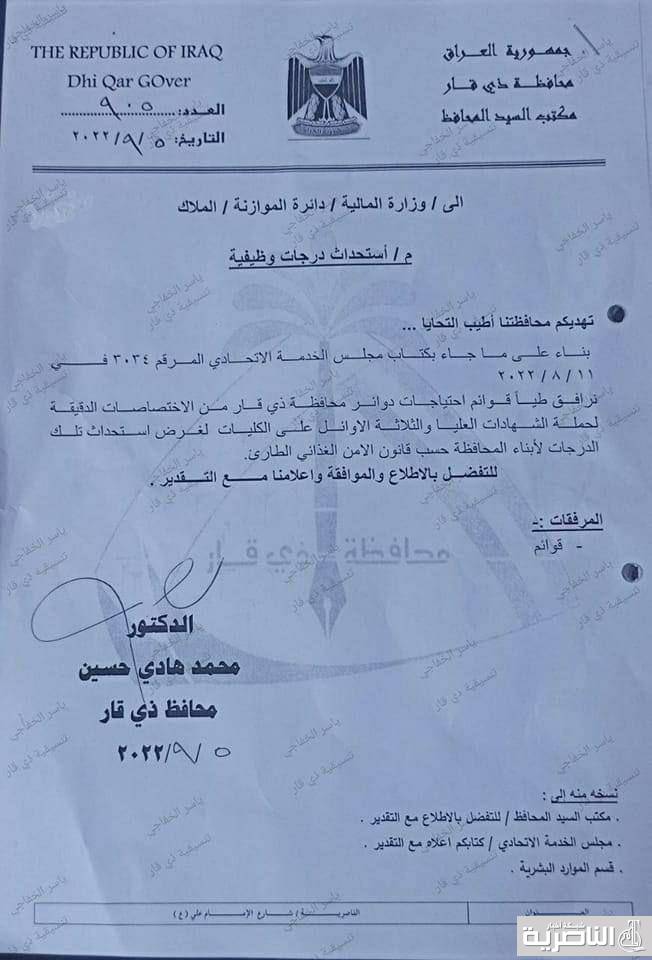 THE REPUBLIC OF IRAQ
Dhi Qar GOver
العدد: ٩٠٥
التاريخ: ٢٠٢٢/٩/٥
جمهورية العراق
محافظة ذي قار
مكتب السيد المحافظ
الى / وزارة المالية / دائرة الموازنة / الملاك
م / أستحداث درجات وظيفية
تهديكم محافظتنا أطيب التحايا ...
بناء على ما جاء بكتاب مجلس الخدمة الاتحادي المرقم ٣٠٣٤ في
١١ / ٨ / ٢٠٢٢
نرافق طيأ قوائم احتياجات دوائر محافظة ذي قار من الاختصاصات الدقيقة
لحملة الشهادات العليا والثلاثة الاوائل على الكليات لغرض استحداث تلك
الدرجات لأبناء المحافظة حسب قانون الامن الغذائي الطارئ.
للتفضل بالاطلاع والموافقة واعلامنا مع التقدير .
المرفقات :-
- قوائم
الدكتور
محمد هادي حسين
محافظ ذي قار
٢٠٢٢/٩/٥
نسخه منه إلى :
- مكتب السيد المحافظ / للتفضل بالاطلاع مع التقدير .
- مجلس الخدمة الاتحادي / كتابكم اعلاه مع التقدير .
- قسم الموارد البشرية .
العنوان
الناصرية / شارع الإمام علي (ع)
شبكة أخبار
الناصرية
ياسر الخفاجي
تنسيقية ذي قار